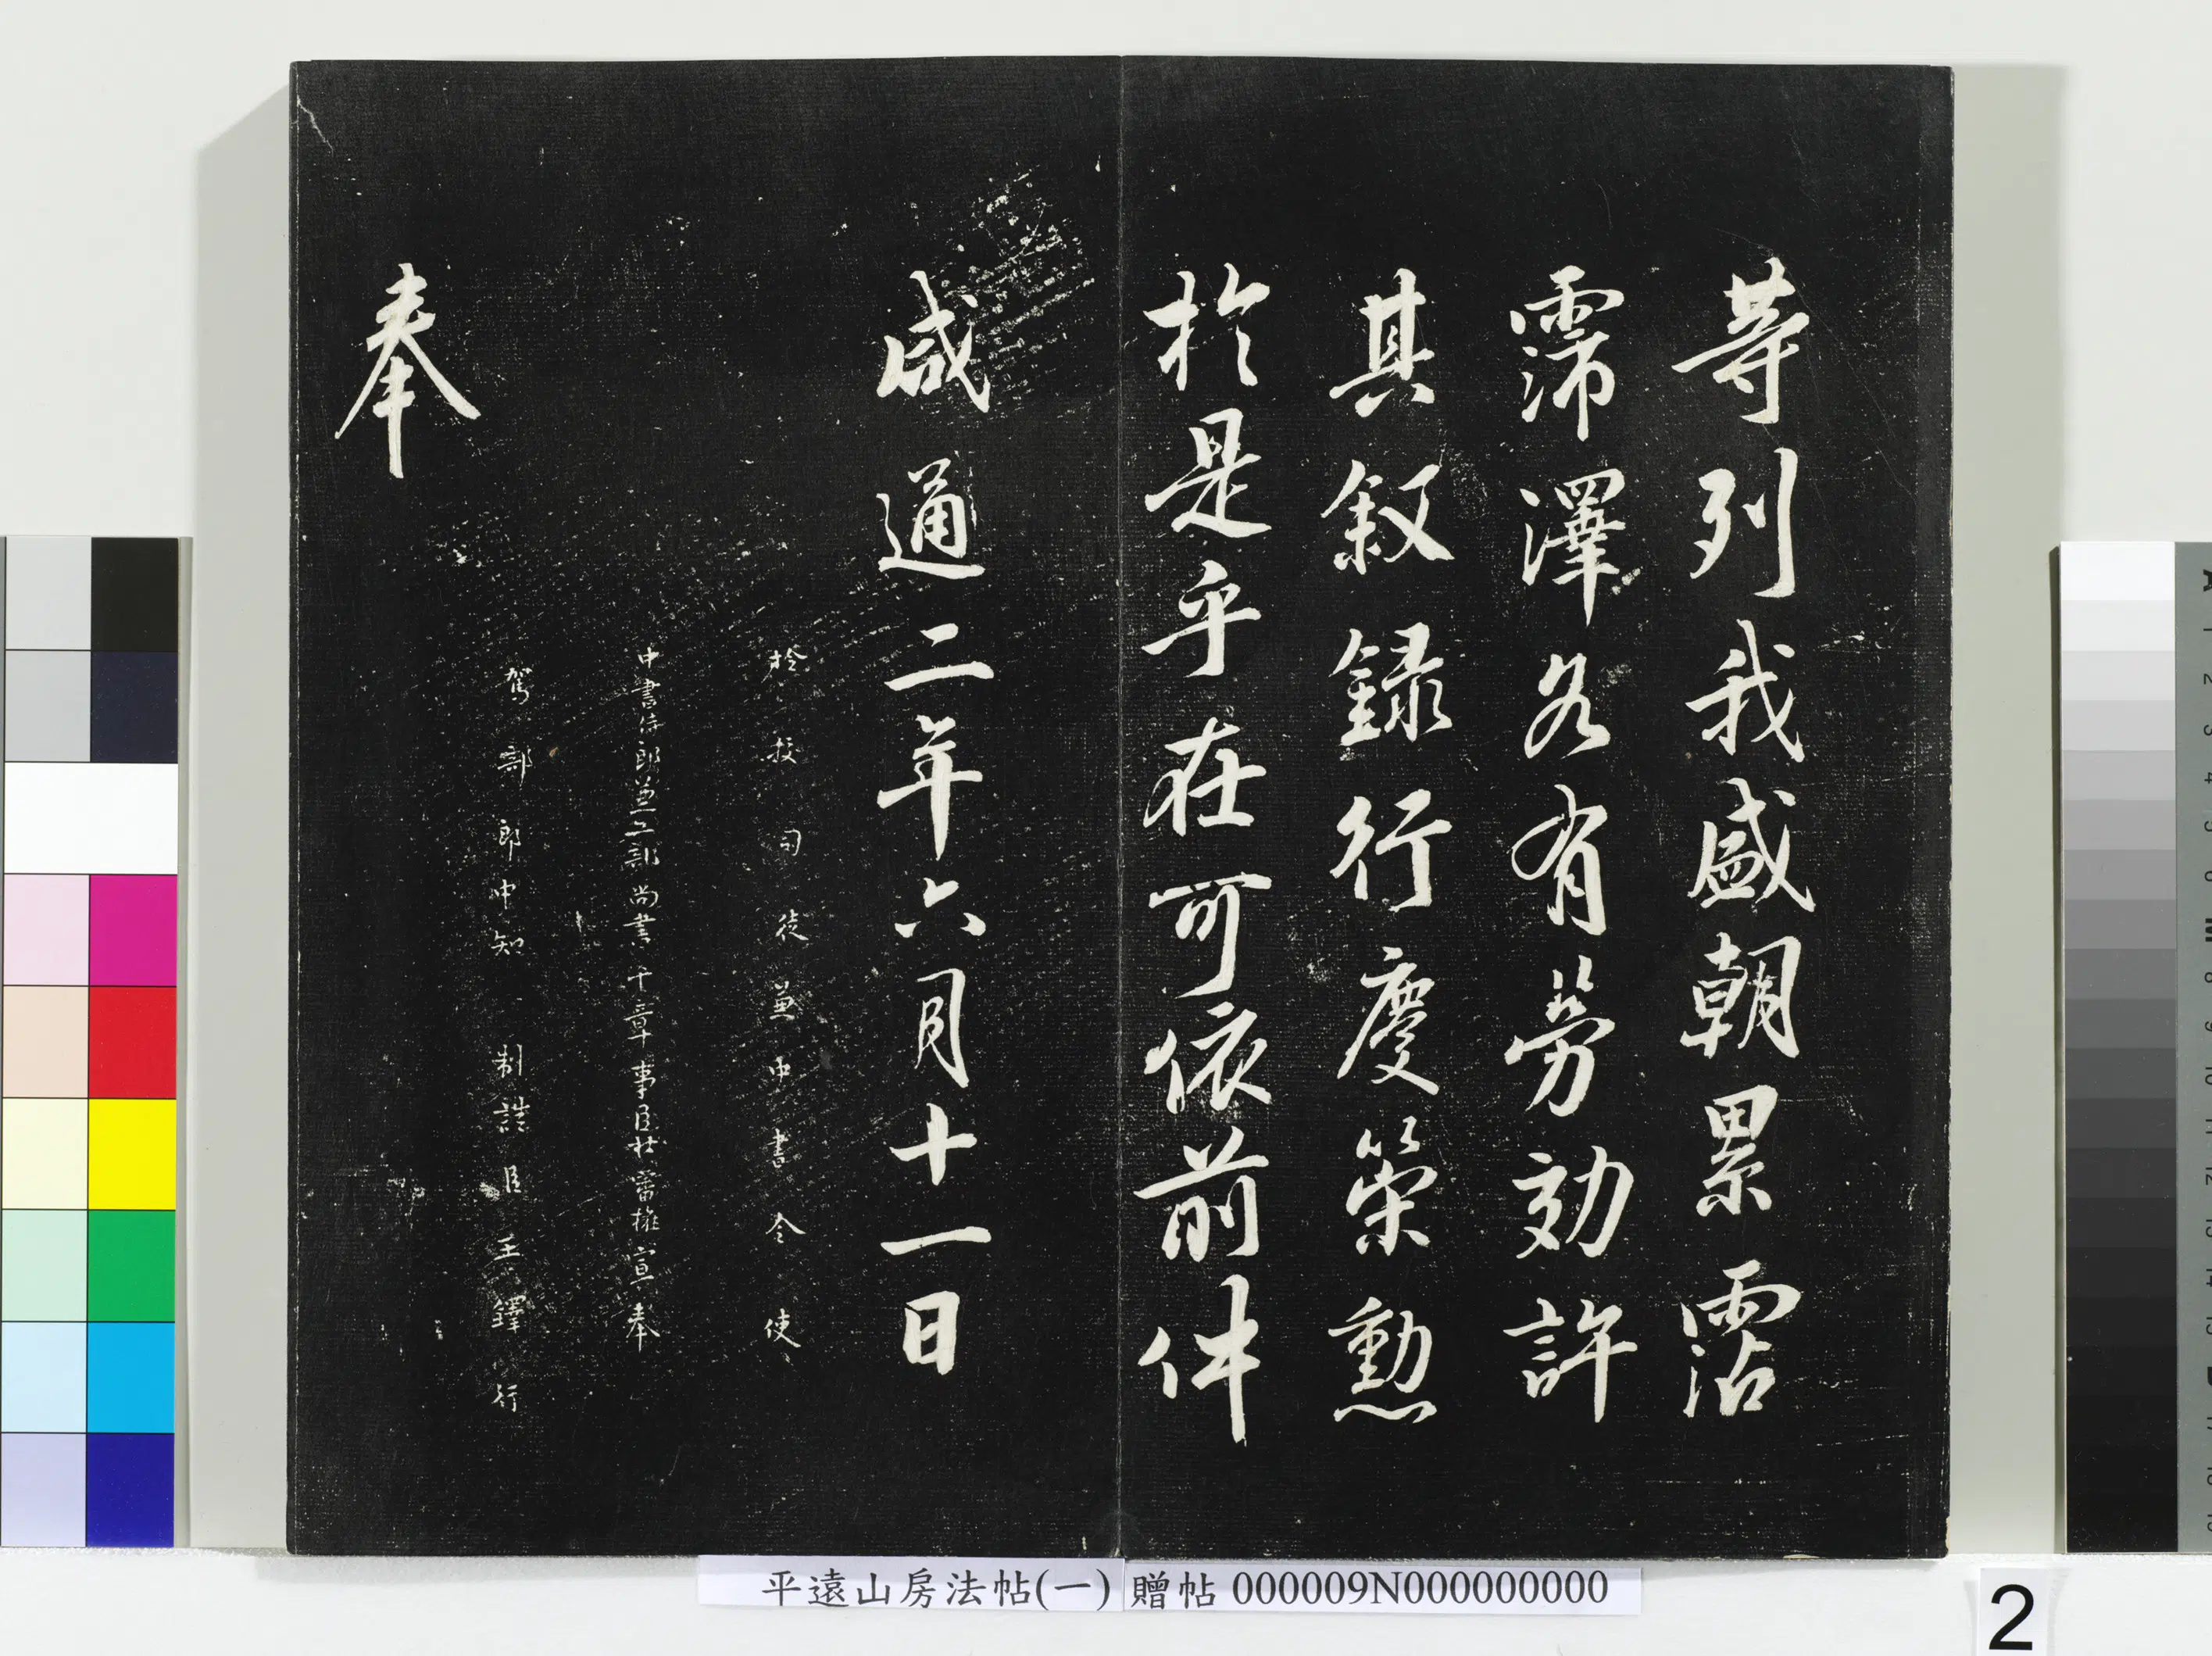 等列我盛朝累霑
霈澤各有勞効許
其叙録行慶策勲
於是乎在可依前件
咸通二年六月十一日
檢挍司徒兼中書令使
中書侍郎兼工部尚書平章事臣杜審權宣奉
駕部郎中知制誥臣王鐸行
奉
平遠山房法帖(一) 贈帖 000009N000000000
2